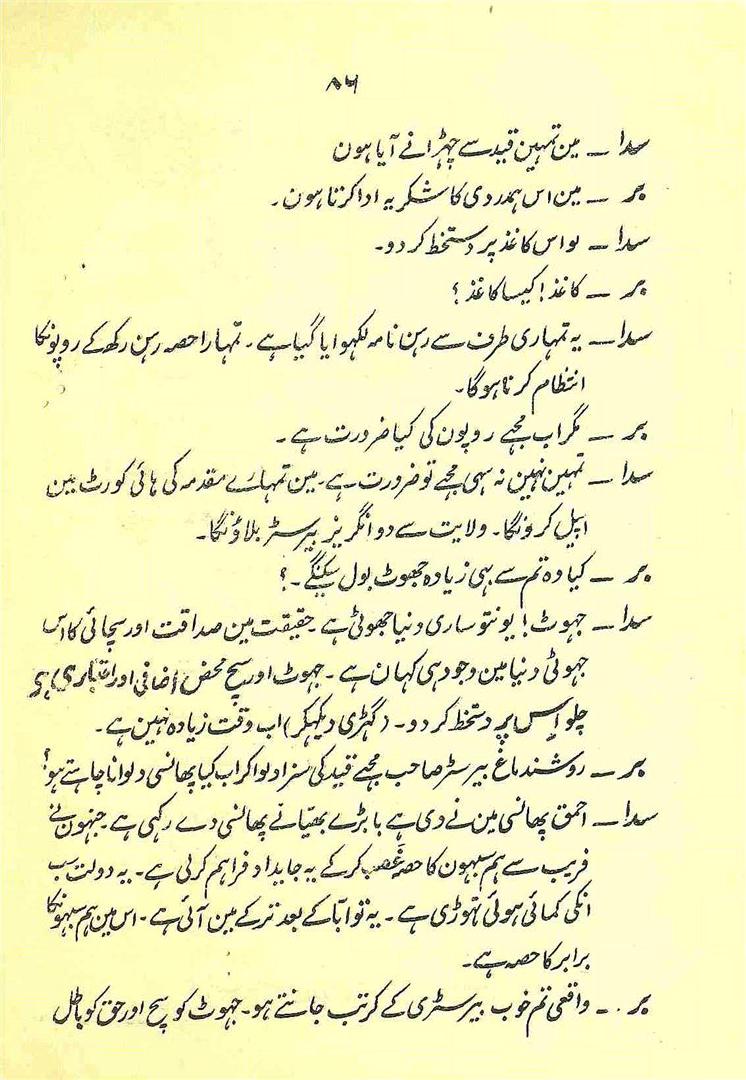 ۸۶
سدا ــ مین تمہین قید سے چہڑانے آیا ہون
بر ــ مین اس ہمدردی کا شکریہ ادا کرتا ہون۔
سدا ــ لو اس کاغذ پر دستخط کر دو۔
بر ــ کاغذ! کیسا کاغذ؟
سدا ــ یہ تمہاری طرف سے رہن نامہ لکہوایا گیا ہے۔ تمہارا حصہ رہن رکھ کے روپونکا
انتظام کرنا ہوگا۔
بر ــ مگر اب مجہے روپون کی کیا ضرورت ہے۔
سدا ــ تمہین نہین نہ سہی مجہے تو ضرورت ہے۔ مین تمہارے مقدمہ کی ہائی کورٹ مین
اپیل کرونگا۔ ولایت سے دو انگریز بیرسٹر بلاؤنگا۔
بر ــ کیا وہ تم سے بہی زیادہ جھوٹ بول سکینگے۔؟
سدا ــ جہوٹ! یونتو ساری دنیا جھوٹی ہے۔ حقیقت مین صداقت اور سچائی کا اس
جہوٹی دنیا مین وجود ہی کہان ہے۔ جہوٹ اور سچ محض اضافی اور اعتباری ہے
چلو اِس پر دستخط کر دو۔ (گہڑی دیکہکر) اب وقت زیادہ نہین ہے۔
بر ــ روشندماغ بیرسٹر صاحب مجہے قید کی سزا دلوا کر اب کیا پھانسی دلوانا چاہتے ہو؟
سدا ــ احمق پھانسی مین نے دی ہے یا بڑے بھیّا نے پھانسی دے رکہی ہے۔ جنہون نے
فریب سے ہم سبہون کا حصہ غصب کر کے یہ جایداد فراہم کر لی ہے۔ یہ دولت سب
انکی کمائی ہوئی تہوڑی ہے۔ یہ تو ابّا کے بعد ترکے مین آئی ہے۔ اس مین ہم سبہونکا
برابر کا حصہ ہے۔
بر ــ واقعی تم خوب بیرسٹری کے کرتب جانتے ہو۔ جہوٹ کو سچ اور حق کو باطل